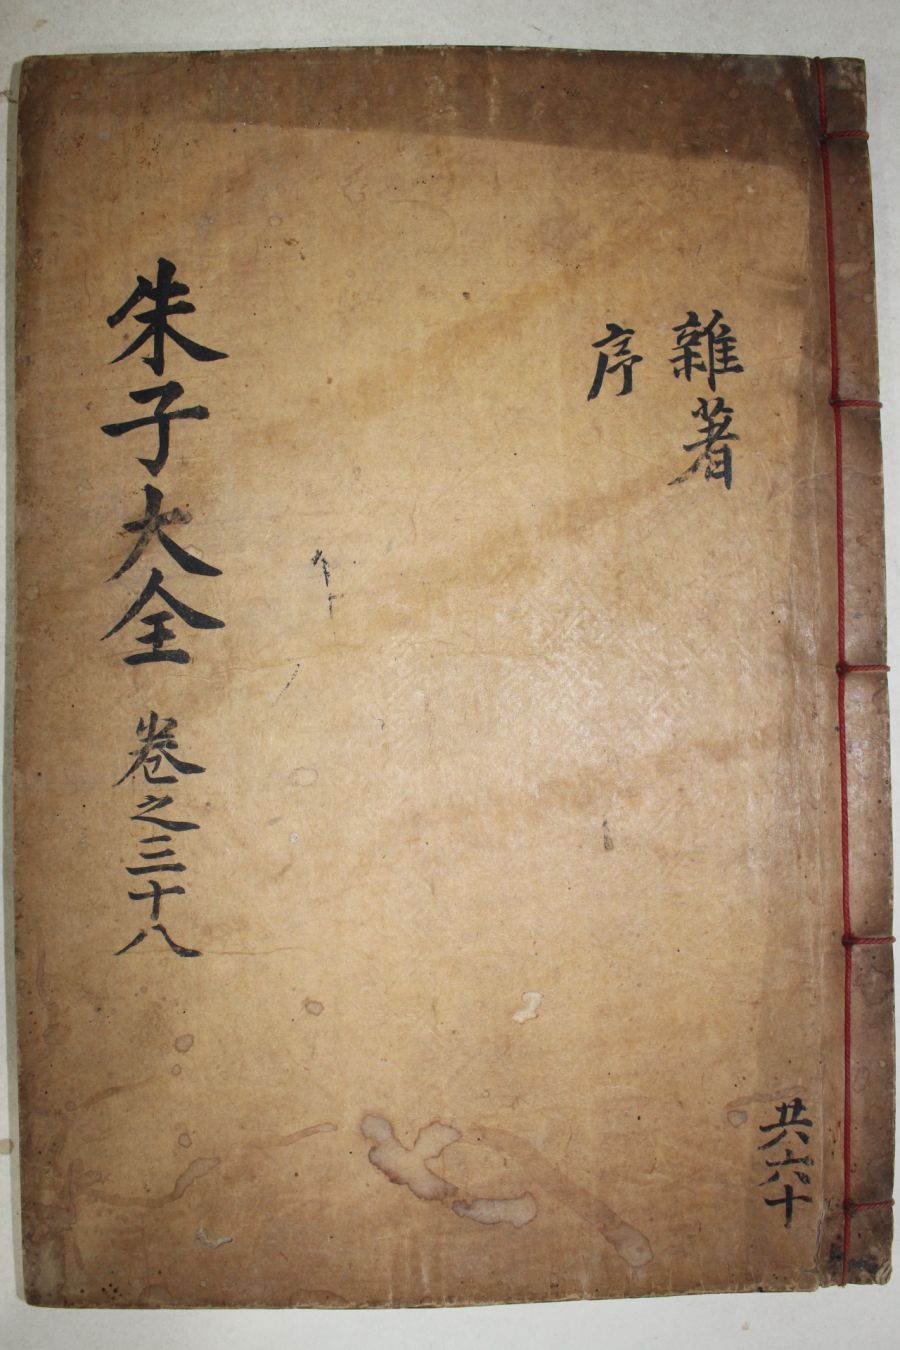 雜著
序
朱子大全 卷之三十八
共六十